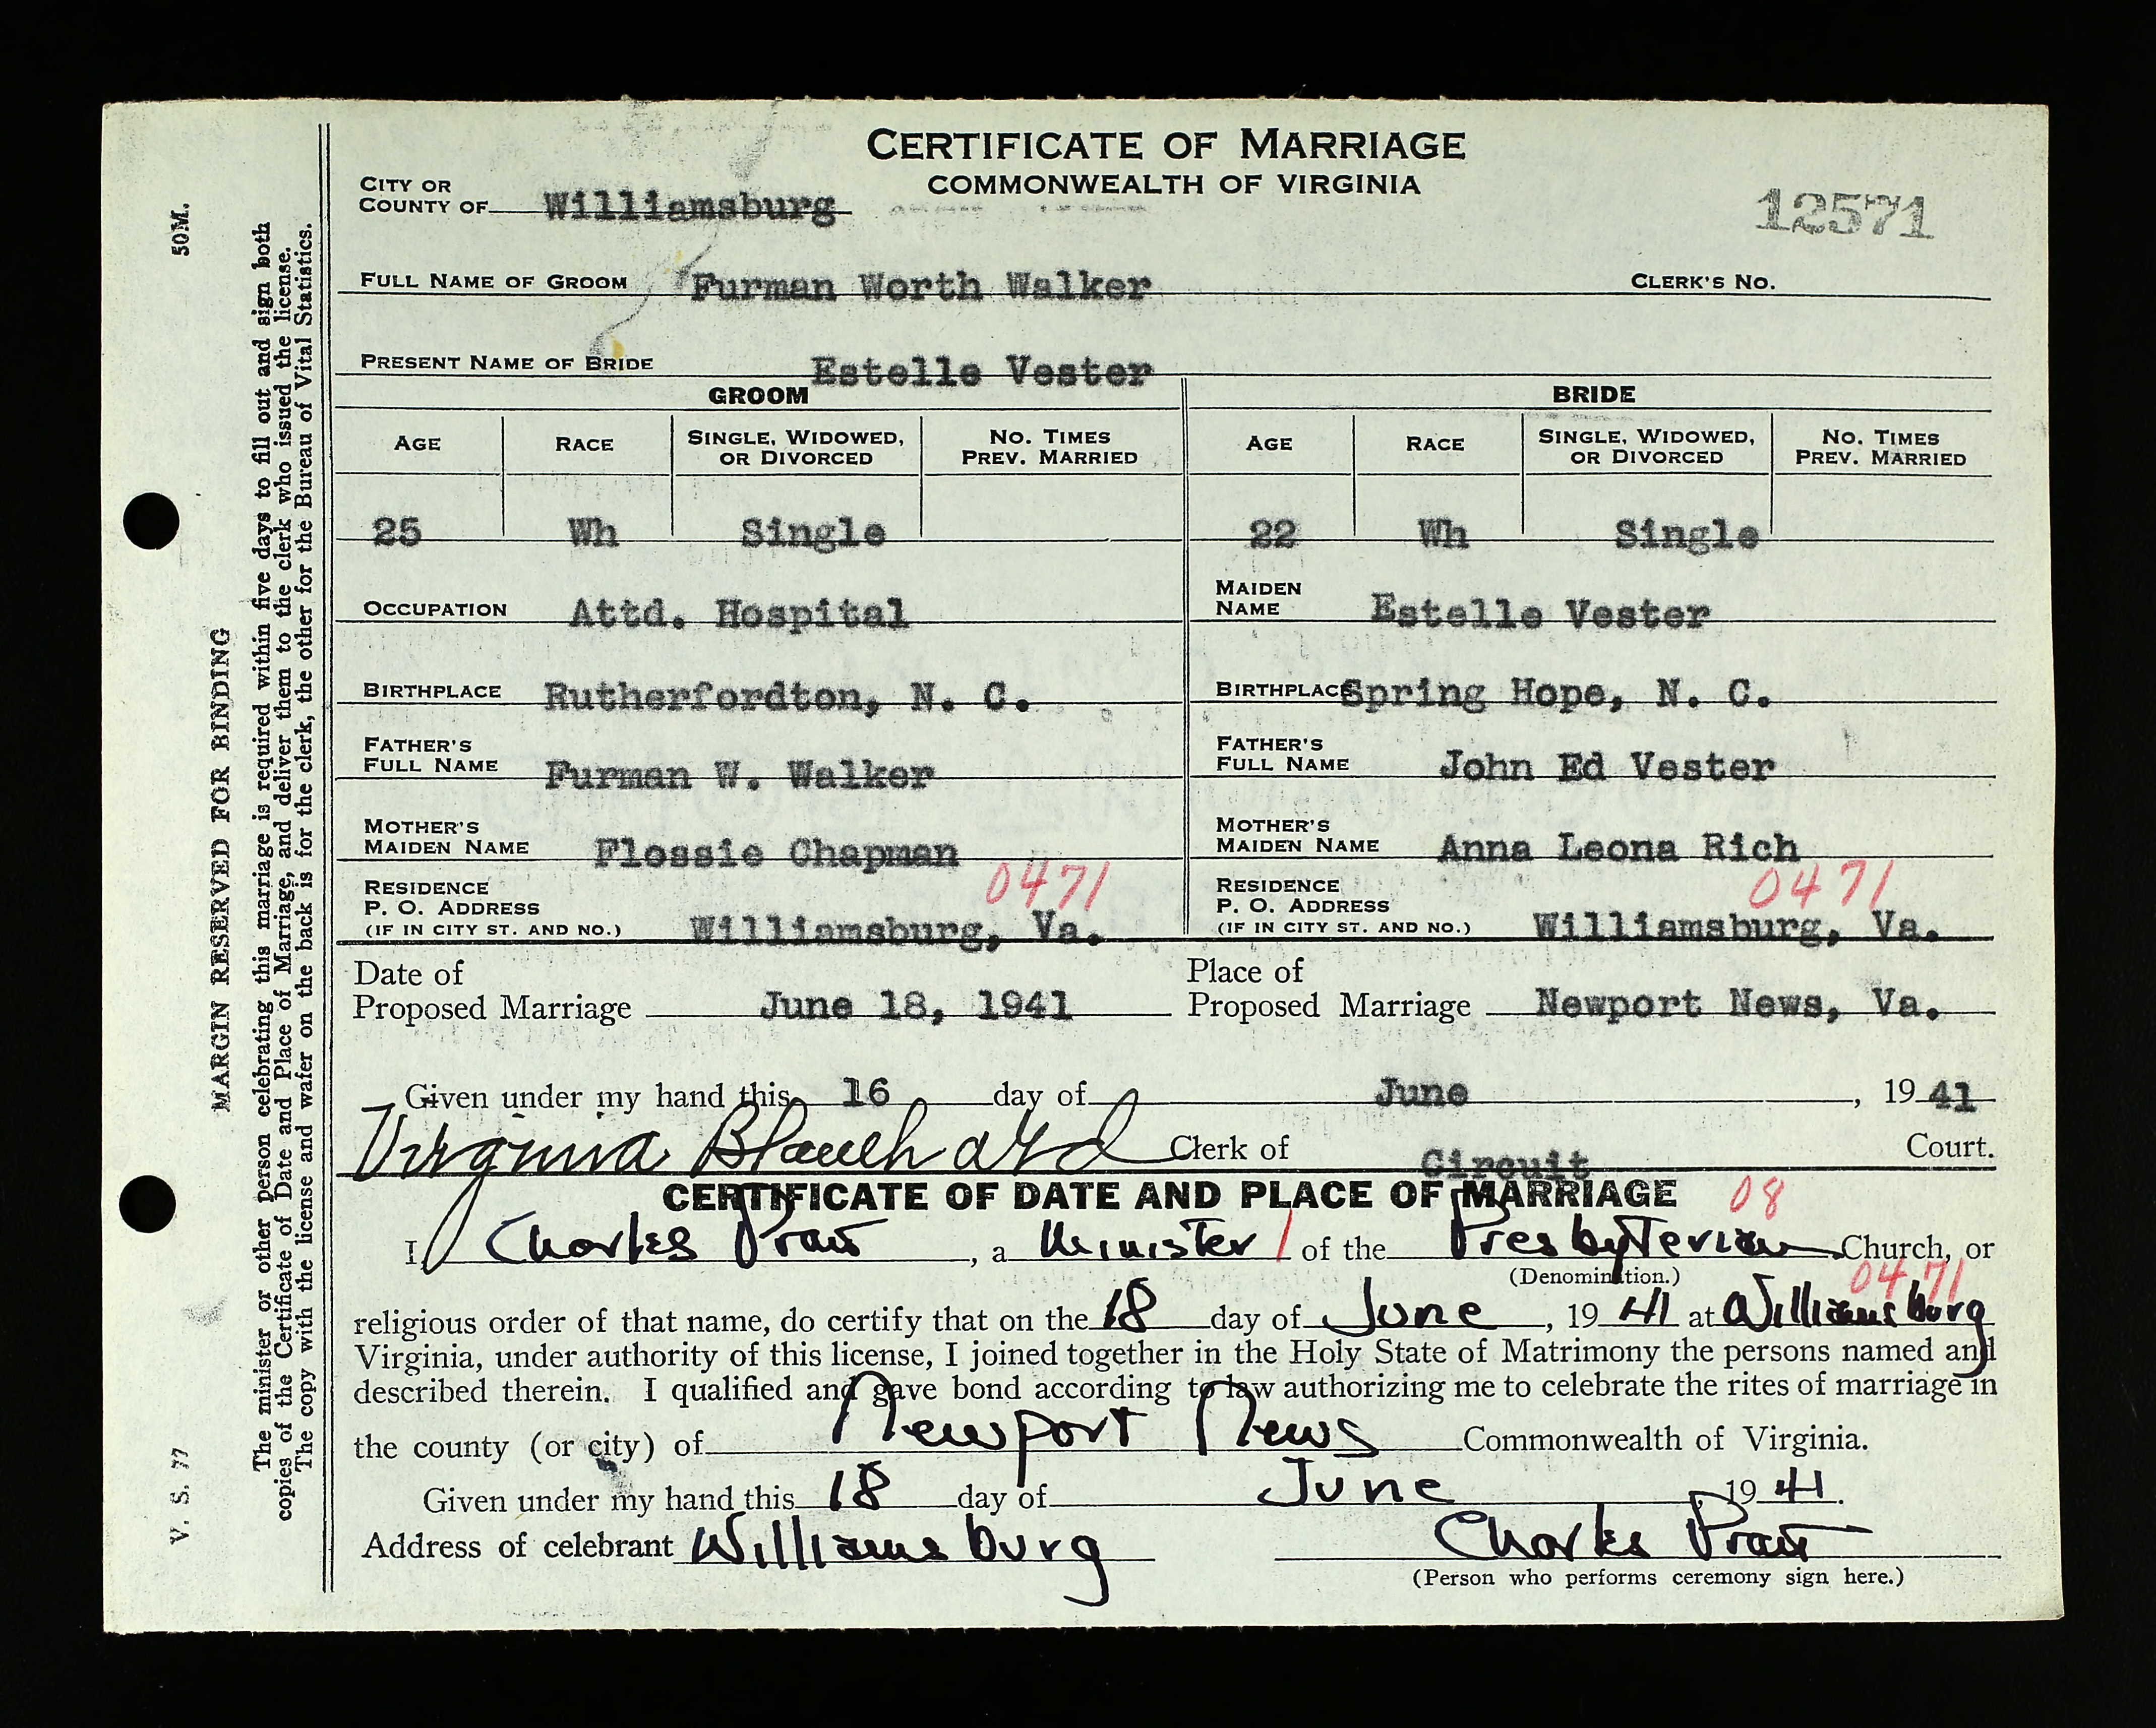 CERTIFICATE OF MARRIAGE
COMMONWEALTH OF VIRGINIA
CITY OR COUNTY OF Williamsburg
12571
FULL NAME OF GROOM Furman Worth Walker CLERK'S NO.
PRESENT NAME OF BRIDE Estelle Vester
GROOM BRIDE
AGE RACE SINGLE, WIDOWED, OR DIVORCED NO. TIMES PREV. MARRIED AGE RACE SINGLE, WIDOWED, OR DIVORCED NO. TIMES PREV. MARRIED
25 Wh Single 22 Wh Single
OCCUPATION Attd. Hospital MAIDEN NAME Estelle Vester
BIRTHPLACE Rutherfordton, N. C. BIRTHPLACE Spring Hope, N. C.
FATHER'S FULL NAME Furman W. Walker FATHER'S FULL NAME John Ed Vester
MOTHER'S MAIDEN NAME Flossie Chapman MOTHER'S MAIDEN NAME Anna Leona Rich
0471 0471
RESIDENCE P. O. ADDRESS (IF IN CITY ST. AND NO.) Williamsburg, Va. RESIDENCE P. O. ADDRESS (IF IN CITY ST. AND NO.) Williamsburg, Va.
Date of Proposed Marriage June 18, 1941 Place of Proposed Marriage Newport News, Va.
Given under my hand this 16 day of June, 1941
Virginia Blanchard Clerk of Circuit Court.
CERTIFICATE OF DATE AND PLACE OF MARRIAGE 08
I, Charles Pratt, a Minister / of the Presbyterian Church, or
(Denomination.)
0471
religious order of that name, do certify that on the 18 day of June, 1941 at Williamsburg
Virginia, under authority of this license, I joined together in the Holy State of Matrimony the persons named and
described therein. I qualified and gave bond according to law authorizing me to celebrate the rites of marriage in
the county (or city) of Newport News Commonwealth of Virginia.
Given under my hand this 18 day of June, 1941.
Address of celebrant Williamsburg Charles Pratt
(Person who performs ceremony sign here.)
V. S. 77 50M.
MARGIN RESERVED FOR BINDING
The minister or other person celebrating this marriage is required within five days to fill out and sign both
copies of the Certificate of Date and Place of Marriage, and deliver them to the clerk who issued the license.
The copy with the license and wafer on the back is for the clerk, the other for the Bureau of Vital Statistics.